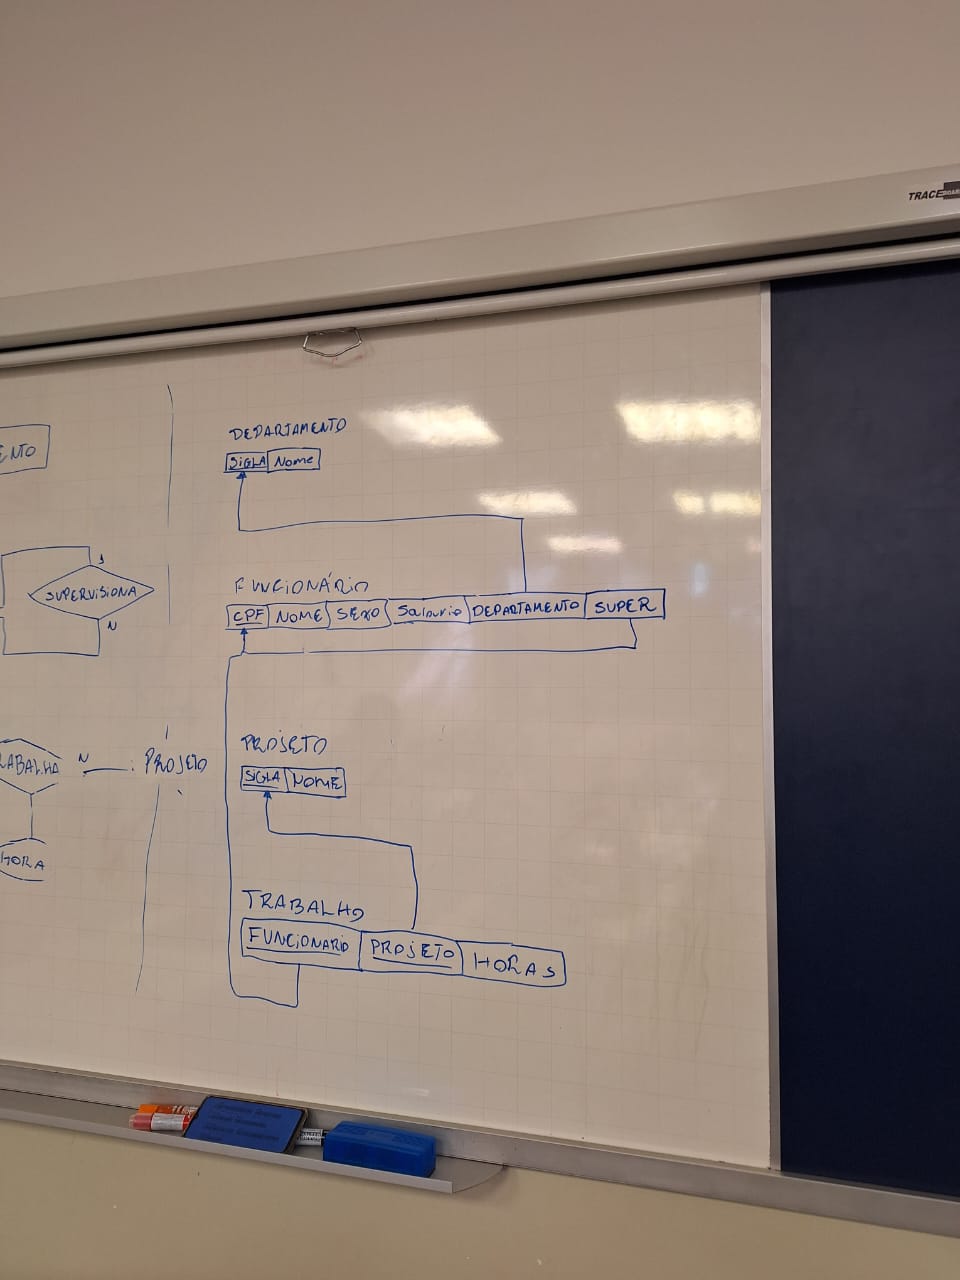 TRACE
ENTO
SUPERVISIONA
1
N
RABALHA N PROJETO
HORA
DEPARTAMENTO
SiGLA Nome
FUNCIONÁRIO
CPF NOME SEXO Salário DEPARTAMENTO SUPER
PROJETO
SIGLA NOME
TRABALHO
FUNCIONARIO PROJETO HORAS